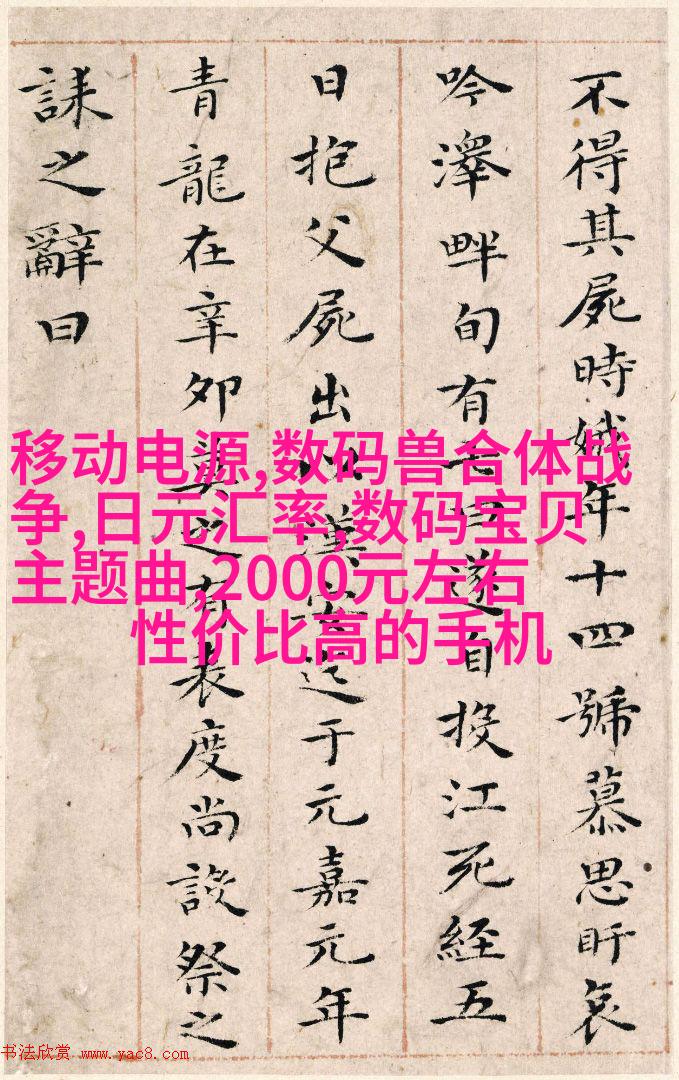 不得其屍時娥年十四號慕思盱哀
吟澤畔旬有七日遂自投江死經五
日抱父屍出以漢安迄于元嘉元年
青龍在辛卯莫之有表度尚設祭之
誄之辭曰
移动电源,数码兽合体战
争,日元汇率,数码宝贝
主题曲,2000元左右
性价比高的手机
书法欣赏 www.yac8.com